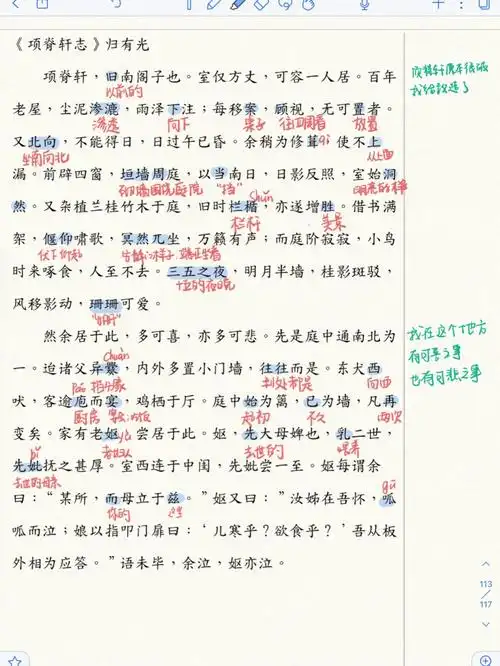 《项脊轩志》归有光
项脊轩，旧南阁子也。室仅方丈，可容一人居。百年
以前的
老屋，尘泥渗漉，雨泽下注；每移案，顾视，无可置者。
渗透 向下 桌子 往四周看 放置
又北向，不能得日，日过午已昏。余稍为修葺，使不上
坐南向北 qì 从上面
漏。前辟四窗，垣墙周庭，以当南日，日影反照，室始洞
砌墙围绕庭院 "挡" 明亮的样
然。又杂植兰桂竹木于庭，旧时栏楯，亦遂增胜。借书满
shǔn 栏杆 美景
架，偃仰啸歌，冥然兀坐，万籁有声；而庭阶寂寂，小鸟
时来啄食，人至不去。三五之夜，明月半墙，桂影斑驳，
十五的夜晚
风移影动，珊珊可爱。
然余居于此，多可喜，亦多可悲。先是庭中通南北为
一。迨诸父异爨，内外多置小门墙，往往而是。东犬西
chuàn 到处都是 向西
吠，客逾庖而宴，鸡栖于厅。庭中始为篱，已为墙，凡再
厨房 起初 不久 两次
变矣。家有老妪，尝居于此。妪，先大母婢也，乳二世，
去世的 喂养
先妣抚之甚厚。室西连于中闺，先妣尝一至。妪每谓余
bǐ
去世的母亲
曰："某所，而母立于兹。"妪又曰："汝姊在吾怀，呱
你的 这里 gū
呱而泣；娘以指叩门扉曰：'儿寒乎？欲食乎？'吾从板
外相为应答。"语未毕，余泣，妪亦泣。
我在这个地方
有可喜之事
也有可悲之事
113
/
117